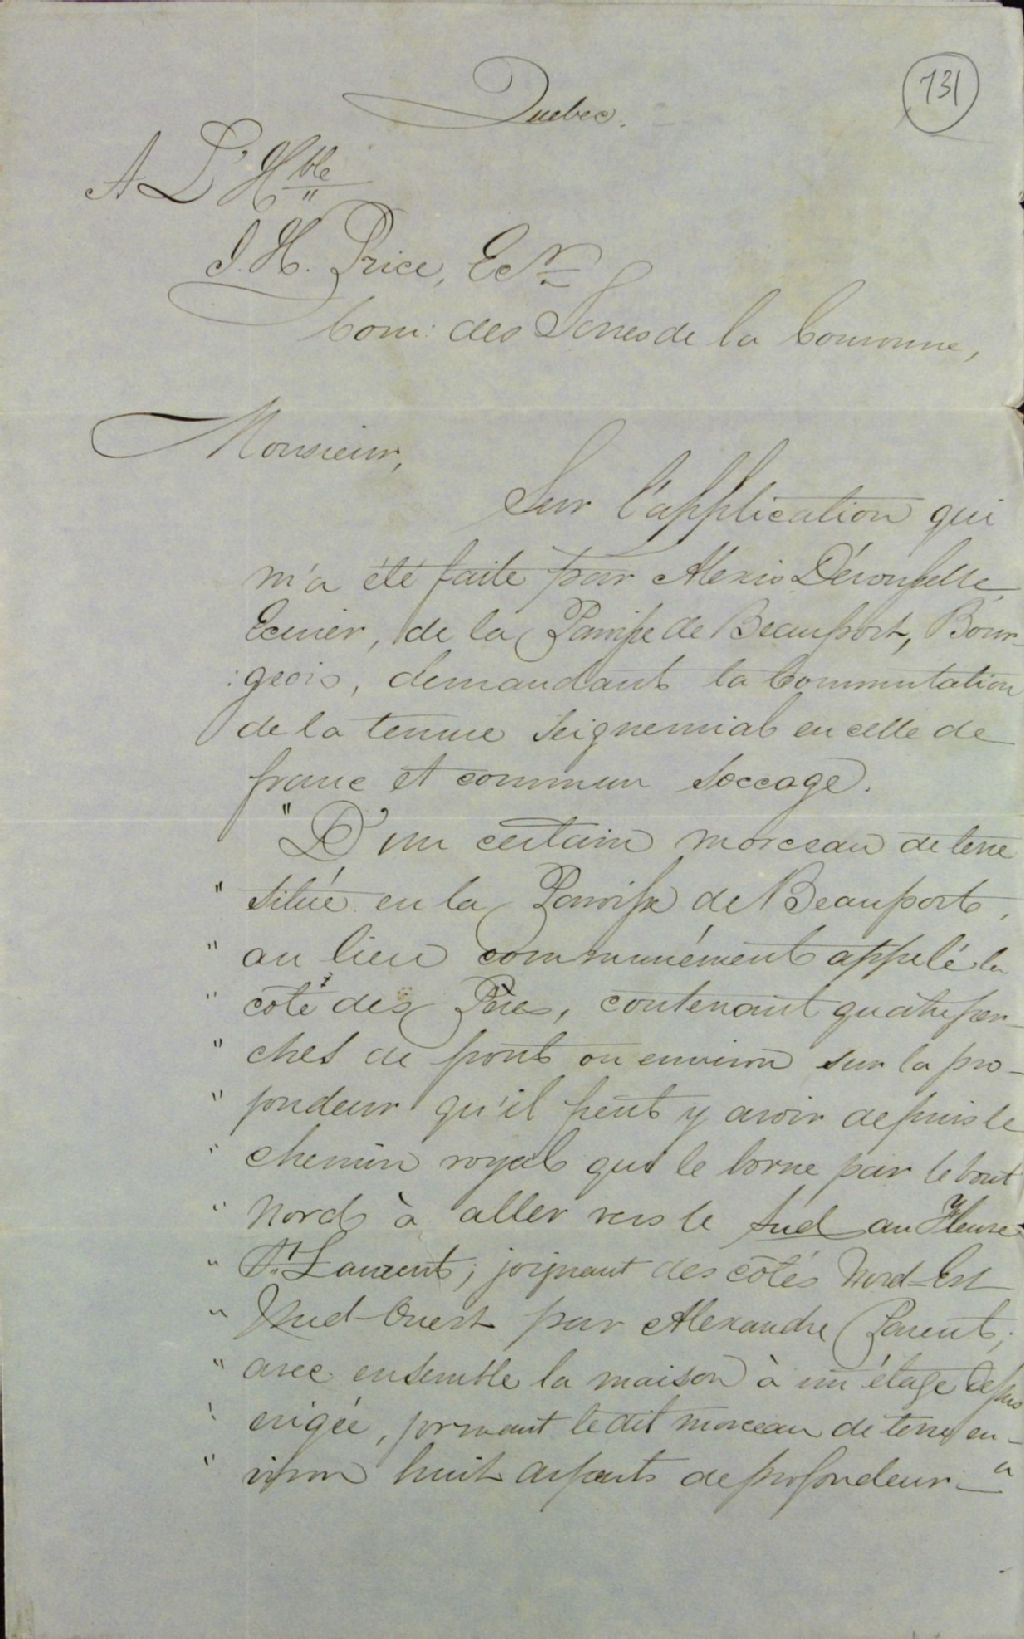 131
Quebec.
A L'Hble
J. H. Price, Ecr
Com: des Terres de la Couronne,
Monsieur,
Sur l'application qui
m'a été faite par Alexis Dérousselle
Ecuier, de la Paroisse de Beauport, Bour-
:geois, demandant la Commutation
de la tenure Seigneurial en celle de
franc et commun soccage.
"D'un certain morceau de terre
" située en la Paroisse de Beauport,
" au lieu communément appelé la
" côte des Pères, contenant quatre per-
" ches de front ou environ sur la pro-
" fondeur qu'il peut y avoir depuis le
" chemin royal qui le borne par le bout
" Nord à aller vers le Sud au Fleuve
" St Laurent; joignant des côtés Nord-Est
" Sud-Ouest par Alexandre Parent;
" avec ensemble la maison à un étage dessus
" erigée, formant le dit morceau de terre en-
" viron huit arpents de profondeur—"